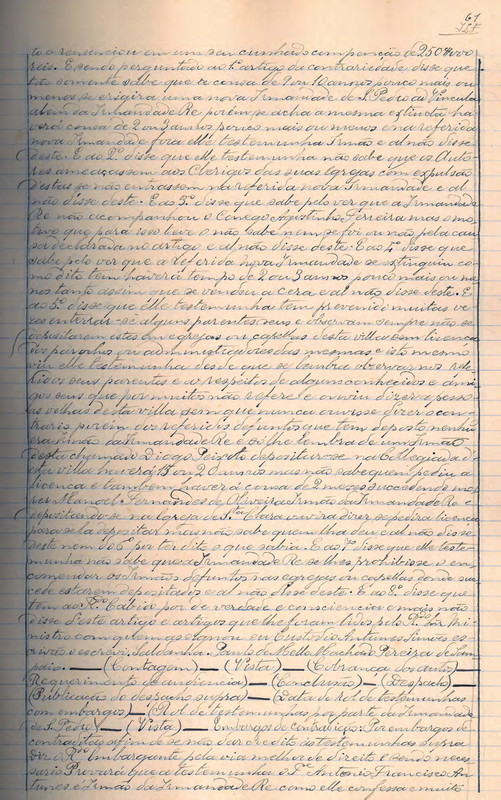 61
to o renunciou em um seu cunhado com pensão de 250$000
reis. E sendo perguntado ao 1º artigo da contrariedade disse que
elle somente sabe que ha cousa de 9 ou 10 annos pouco mais ou
menos se erigira uma nova Irmandade de S. Pedro ad Vincula
alem da Irmandade Re porém se acha a mesma extincta ha
verá cousa de 2 ou 3 annos pouco mais ou menos e na referida
nova Irmandade fora elle testemunha Irmão e al não disse
deste. E ao 2º disse que elle testemunha não sabe que os Auto-
res ameaçassem aos Clerigos das suas Igrejas com expulsão
destas se não entrassem na referida nova Irmandade e al
não disse deste. E ao 3º disse que sabe pelo ver que a Irmandade
Re não acompanhou o Conego Agostinho Ferreira mas o mo-
tivo que para isso teve o não sabe nem se foi ou não pela cau-
sa declarada no artigo e al não disse deste. E ao 4º disse que
sabe pelo ver que a referida nova Irmandade se extinguiu co-
mo dito tem haverá tempo de 2 ou 3 annos pouco mais ou me-
nos tanto assim que se vendeu a cera e al não disse deste. E
ao 5º disse que elle testemunha tem prevenido muitas ve-
zes enterrar-se alguns parentes seus e observam sempre não se
depositarem estes em egrejas ou capellas desta villa sem licença
dos parochos ou administradores das mesmas e isto mesmo
viu elle testemunha desde que se lembra observar nos
dos seus parentes e a respeito de alguns conhecidos e ami-
gos seus que por muitos não refere e ouviu dizer a pesso-
as velhas desta villa sem que nunca ouvisse dizer o con-
trario porém dos referidos defuntos que tem deposto nenhum
era Irmão da Irmandade Re e só lhe lembra de um Irmão
desta chamado Diogo Peixoto depositar-se na Collegiada d'
esta villa haverá 15 ou 20 annos mas não sabe quem pediu a
licença e tambem haverá cousa de 2 mezes succedendo mor-
rer Manoel Fernandes de Oliveira Irmão da Irmandade Re e
depositando-se na Igreja de S.ta Clara ouvira dizer se pedira licença
para se la depositar mas não sabe quem lha deu e al não disse
deste nem do 6º por ter dito o que sabia. E ao 7º disse que elle teste-
munha não sabe que a Irmandade Re se lhes prohibisse o en-
comendar os Irmãos defuntos nas egrejas ou capellas donde suc-
cede estarem depositados e al não disse deste. E ao 8º disse que
tem ao R.do Cabido por de verdade e consciencia e mais não
disse deste artigo e artigos que lhe foram lidos pelo R.do Dr. Mi-
nistro com quem assignou eu Custodio Antunes Simões es-
crivão o escrevi. Saldanha. Paulo de Mello Machado Pereira de Sam-
paio. — (Contagem) — (Vista) — (Cobrança dos autos)
(Requerimento de audiencia) — (Conclusão) — (Despacho) —
(Publicação do despacho supra) — (Data do Rol de testemunhas
com embargos) — (Rol de testemunhas por parte da Irmandade
de S. Pedro) — (Vista) — Embargos de Contradicção: Por embargos de
contradictas afim de se não dar credito ás testemunhas supra
diz a Re Embargante pela via melhor de direito e sendo neces-
sario Provará que a testemunha o P.e Antonio Francisco An-
tunes é Irmão da Irmandade Re como elle confessa e muito